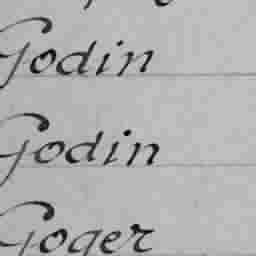 Godin
Godin
Goger